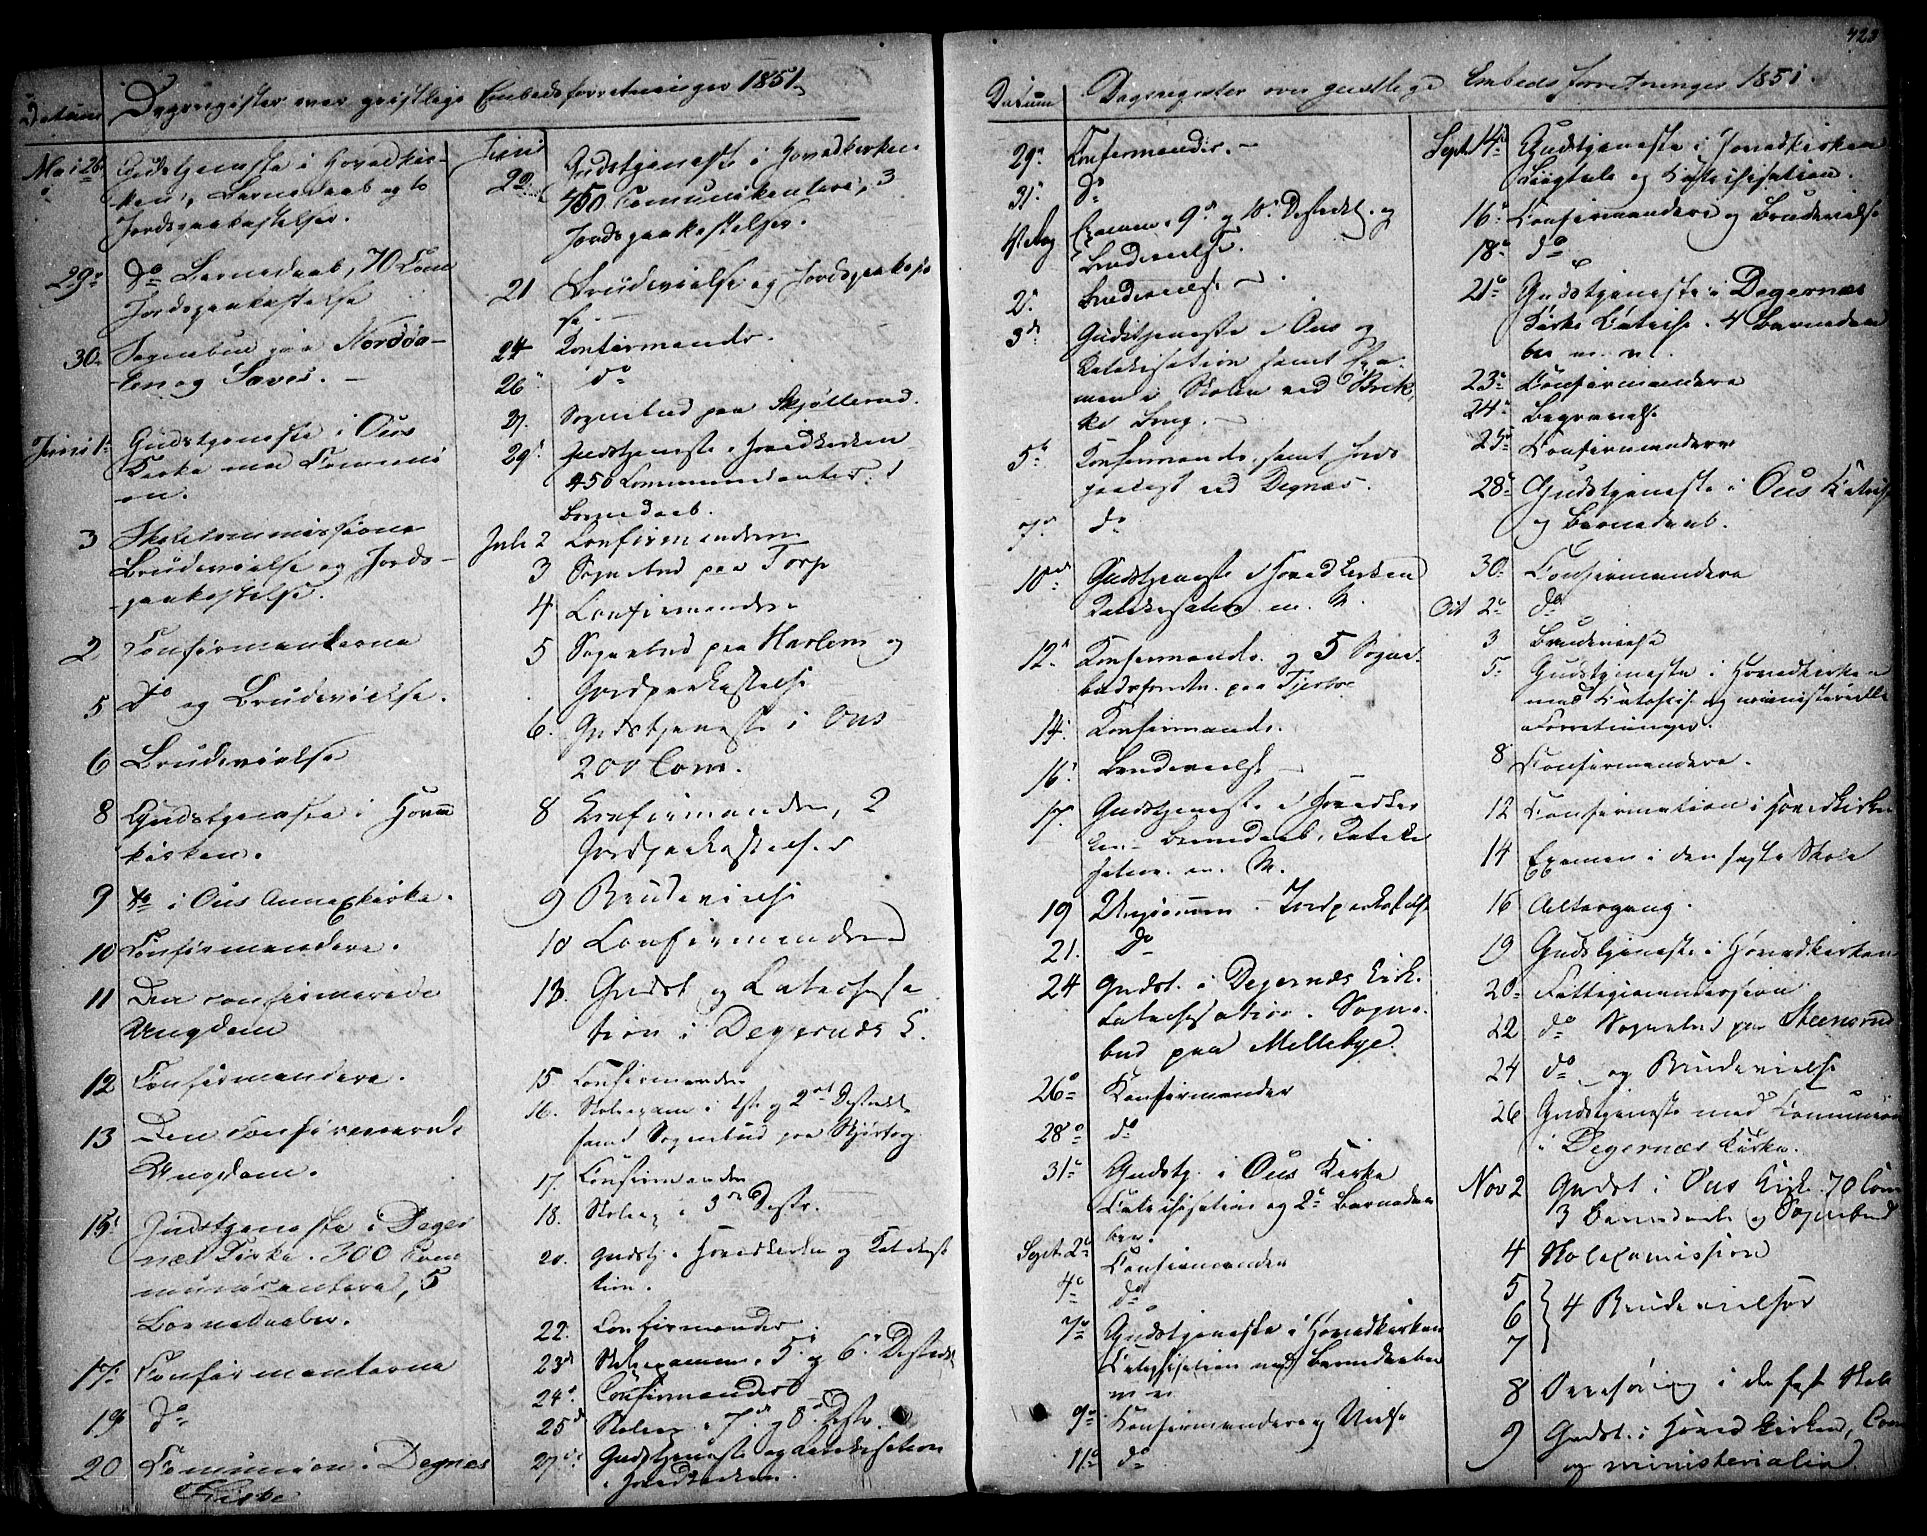 Datum
Dagsregister over geistlige Embedsforretninger 1851.
Mai 25
Gudstjeneste i Hovedkir-
ken, Barnedaab og to
Jordspaakastelser.
29de
Do Barnedaab, 70 Com
Jordspaakastelse
30
Sognebud paa Nordda-
len og Saves. –
Juni 1ste
Gudstjeneste i Ous
Kirke med Communi
on.
3
Skolecommissione
Brudevielse og Jords-
paakastelse.
2
Confirmanterne
5
Do og Brudevielse.
6
Brudevielse
8
Gudstjeneste i Hoved
kirken.
9
Do i Ous Annexkirke.
10
Confirmandere.
11
Den confirmerede
Ungdom
12
Confirmandere.
13
Den confirmerede
Ungdom.
15
Gudstjeneste i Deger
næs Kirke. 300 Com
municantere, 5
Barnedaaber.
17
Confirmanterne
19
Do
20
Communion i Degnæs
Kirke
Juni
22
Gudstjeneste i Hovedkirken
450 Communikantere, 3
Jordspaakastelser.
21
Brudevielse og Jordspaakastel
se. –
24
Konfirmander.
26
do
27
Sognebud paa Skjøllerud.
29
Gudstjeneste i Hovedkirken
450 Communicanter. 1
Barnedaab.
Juli 2
Confirmandern
3
Sognebud paa Torp
4
Confirmandere
5
Sognebud paa Harlem og
Jordpaakastelse
6.
Gudstjeneste i Ous
200 Com.
8
Confirmander, 2
Jordpaakastelser
9
Brudevielse
10
Confirmandere
13.
Gudst og Catechisa
tion i Degernæs K.
15
Confirmander
16.
Skoleexam i 1ste og 2det Distrikt
samt Sognebud paa
17.
Confirmander
18.
Skoleex i 3die Distr.
20.
Gudstj. i Hovedkirken og Katekisa
tion.
22.
Confirmander.
23de
Skoleexamen i 5te og 6te Distrikt
24de
Confirmander
25de
Skoleex. i 7de og 8de Distr.
27de
Gudstjeneste og Katekisation
i Hovedkirken.
423
Datum
Dagsregister over geistlige Embedsforretninger 1851.
29de
Konfirmander. –
31te
do
1ste Aug
Examen i 9de og 10de Distrikt og
Brudevielse.
2den
Brudevielse –
3die
Gudstjeneste i Ous og
Katekisation samt Exa-
men i Skolen ved Brek
ke Brug. –
5te
Konfirmander samt Jords
paakast ved Degnæs.
7de
do
10de
Gudstjeneste i Hovedkirken
Katekisation m. M.
12te
Konfirmander. og 5 Sogne-
budsforretn. paa
14de
Konfirmander.
16de
Brudevielse –
17de
Gudstjeneste i Hovedkir
ken. Barnedaab, Kateki
sation m. M.
19
Ungdommen – Jordpaakastelse
21.
Do
24
Gudst. i Degernæs Kirk.
Catechisation. Sogne-
bud paa Mellebye.
26de
Konfirmander
28de
do
31te
Gudstj. i Ous Kirke
Catechisation og 2de Barnedaa
ber.
Sept 2den
Confirmander
4de
do
7de
Gudstjeneste i Hovedkirken
Catechisation med Barnedaaber
m m
9de
Konfirmandere og Vielse
11te
do
Sept 14de
Gudstjeneste i Hovedkirken
Liigtale og Catechisation.
16de
Confirmandere og Brudevielse
18de
do
21de
Gudstjeneste i Degernæs
Kirke Catechis. 4 Barnedaa
ber m. m.
23de
Confirmandere
24de
Begravelse
25de
Confirmandere
28de
Gudstjeneste i Ous Katechis
og Barnedaab.
30
Confirmandere
Oct 2de
do
3
Brudevielse
5
Gudstjeneste i Hovedkirken
med Catechis. og ministerielle
Forretninger.
8
Confirmandere.
12
Confirmation i Hovedkirken
14
Examen i den faste Skole
16
Altergang.
19
Gudstjeneste i Hovedkirken
20
Fattigcommission
22
do Sognebud paa Steensrud
24
do og Brudevielse
26
Gudstjeneste med Communion
i Degernæs Kirke.
Nov 2
Gudst i Ous Kirk 70 Com
3 Barnedaabe og Sognebud
4
Skolecommission
5
6
7
4 Brudevielser
8
i den faste Skole
9
Gudst. i Hovedkirken, Com
og ministerialia